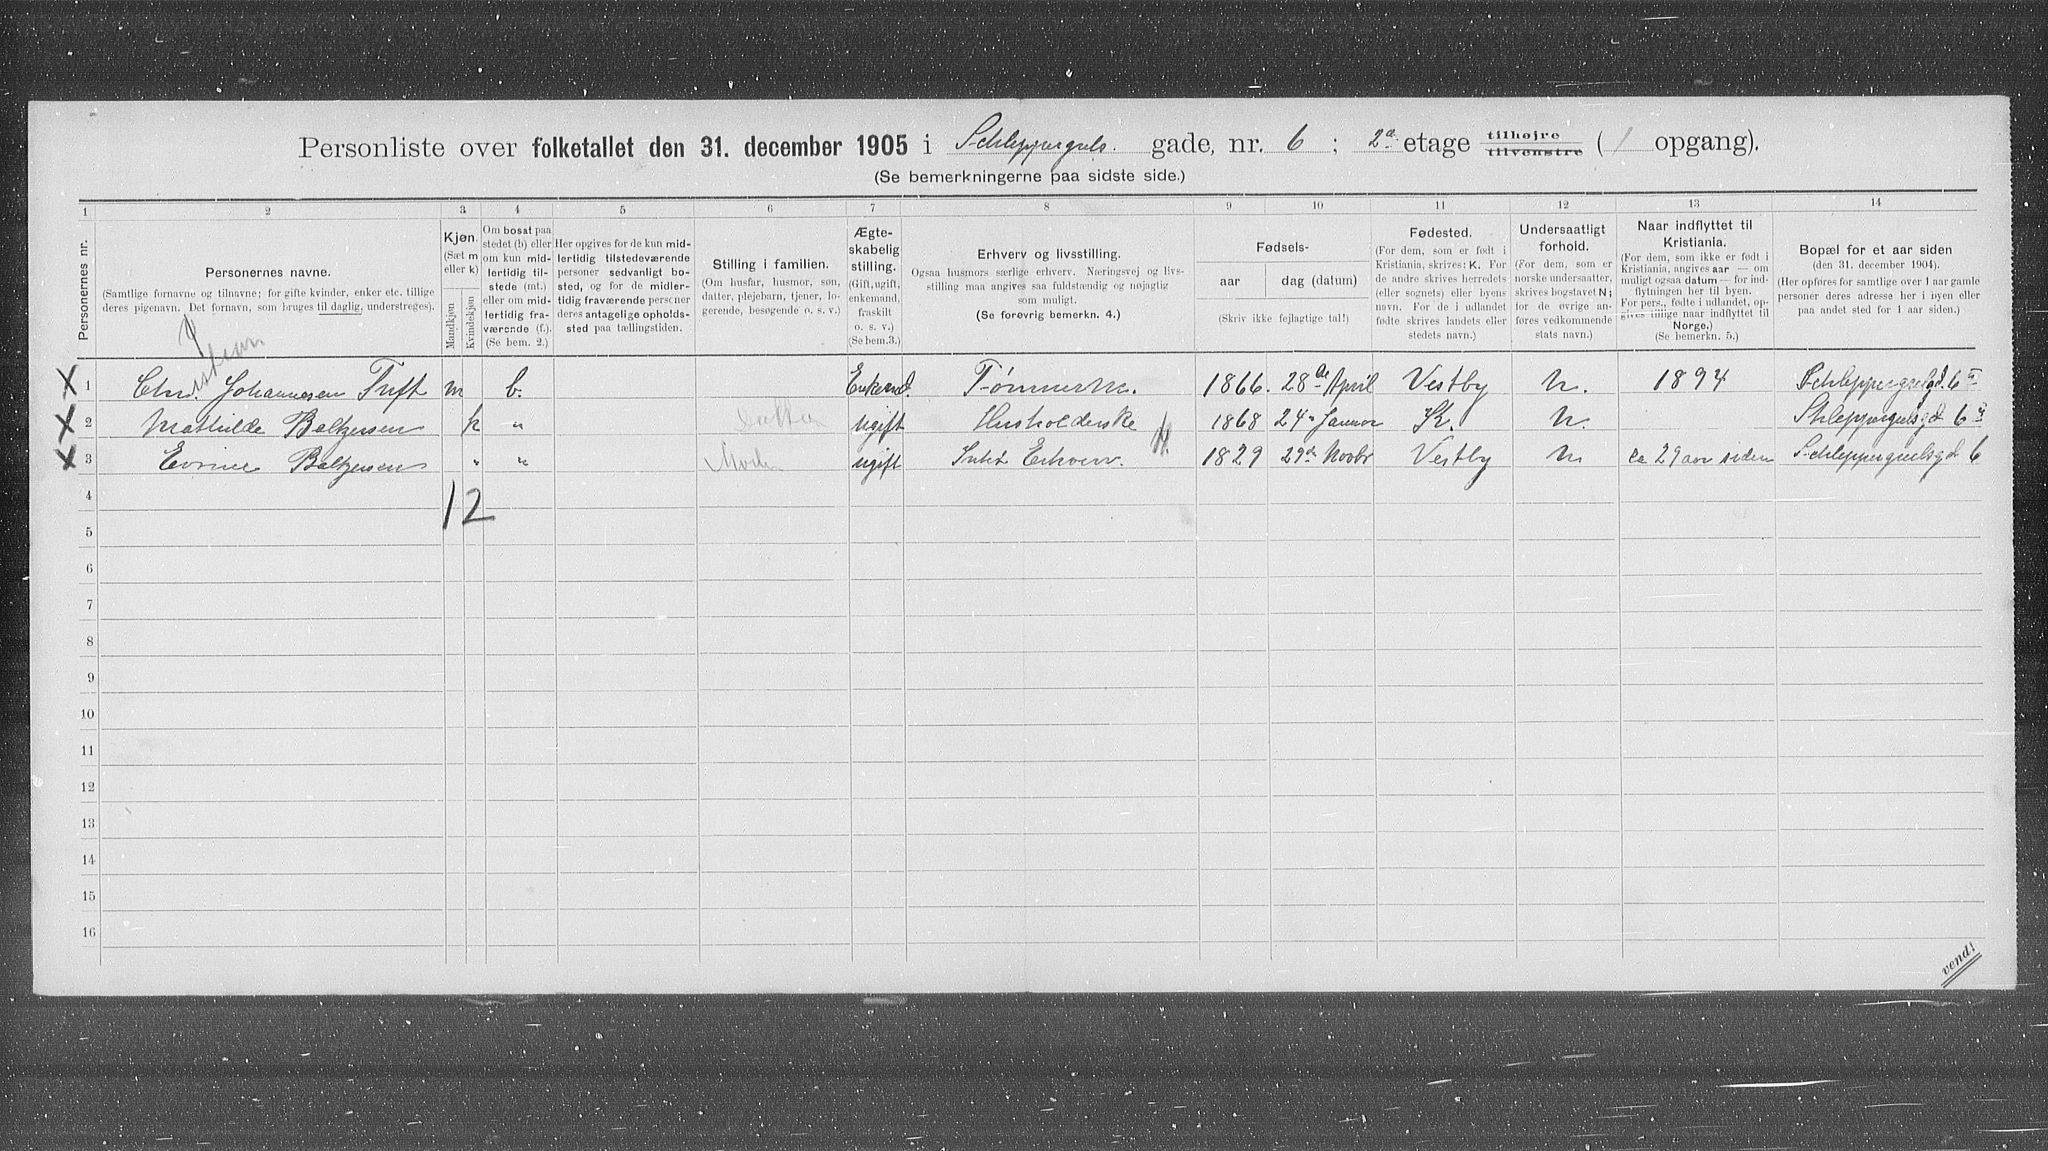 Personliste over folketallet den 31. december 1905 i Schleppegrels. gade, nr. 6 ; 2a etage tilhøjre tilvenstre ( 1 opgang).
(Se bemerkningerne paa sidste side.)
1 2 3 4 5 6 7 8 9 10 11 12 13 14
Personernes nr.
Personernes navne.
(Samtlige fornavne og tilnavne; for gifte kvinder, enker etc. tillige
deres pigenavn. Det fornavn, som bruges til daglig, understreges).
Kjøn.
(Sæt m
eller k)
Mandkjøn
Kvindekjøn
Om bosat paa
stedet (b) eller
om kun mid-
lertidig til-
stede (mt.)
eller om mid-
lertidig fra-
værende (f.).
(Se bem. 2.)
Her opgives for de kun mid-
lertidig tilstedeværende
personer sedvanligt bo-
sted, og for de midler-
tidig fraværende personer
deres antagelige opholds-
sted paa tællingstiden.
Stilling i familien.
(Om husfar, husmor, søn,
datter, plejebarn, tjener, lo-
gerende, besøgende o. s. v.)
Ægte-
skabelig
stilling.
(Gift, ugift,
enkemand,
fraskilt
o. s. v.)
(Se bem.3.)
Erhverv og livsstilling.
Ogsaa husmors særlige erhverv. Næringsvej og livs-
stilling maa angives saa fuldstændig og nøjagtig
som muligt.
(Se forøvrig bemerkn. 4.)
Fødsels-
aar
dag (datum)
(Skriv ikke fejlagtige tal!)
Fødested.
(For dem, som er født i
Kristiania, skrives: K. For
de andre skrives herredets
(eller sognets) eller byens
navn. For de i udlandet
fødte skrives landets eller
stedets navn.)
Undersaatligt
forhold.
(For dem, som er
norske undersaatter,
skrives bogstavet N;
for de øvrige an-
føres vedkommende
stats navn.)
Naar indflyttet til
Kristiania.
(For dem, som ikke er født i
Kristiania, angives aar — om
muligt ogsaa datum — for ind-
flytningen her til byen.
For pers., fødte i udlandet, op-
gives tillige naar indflyttet til
Norge.)
(Se bemerkn. 5.)
Bopæl for et aar siden
(den 31. december 1904).
(Her opføres for samtlige over 1 aar gamle
personer deres adresse her i byen eller
paa andet sted for 1 aar siden.)
X 1 Chr. Johannesen Tuft m b. Enkemd. Tømmerm. 1866. 28de April Vestby N. 1894 Schleppegrelsgd. 6 II
X 2 Mathilde Baltzersen k " Datter ugift Husholderske 1868 24" Januar K. N. Schleppegrelsgd 6 II
X 3 Baltzersen " " Moder ugift Intet Erhverv. 1829 29de Novbr Vestby N ca 29 aar siden Schleppegrelsgd 6
4
12
5
6
7
8
9
10
11
12
13
14
15
16
vend!